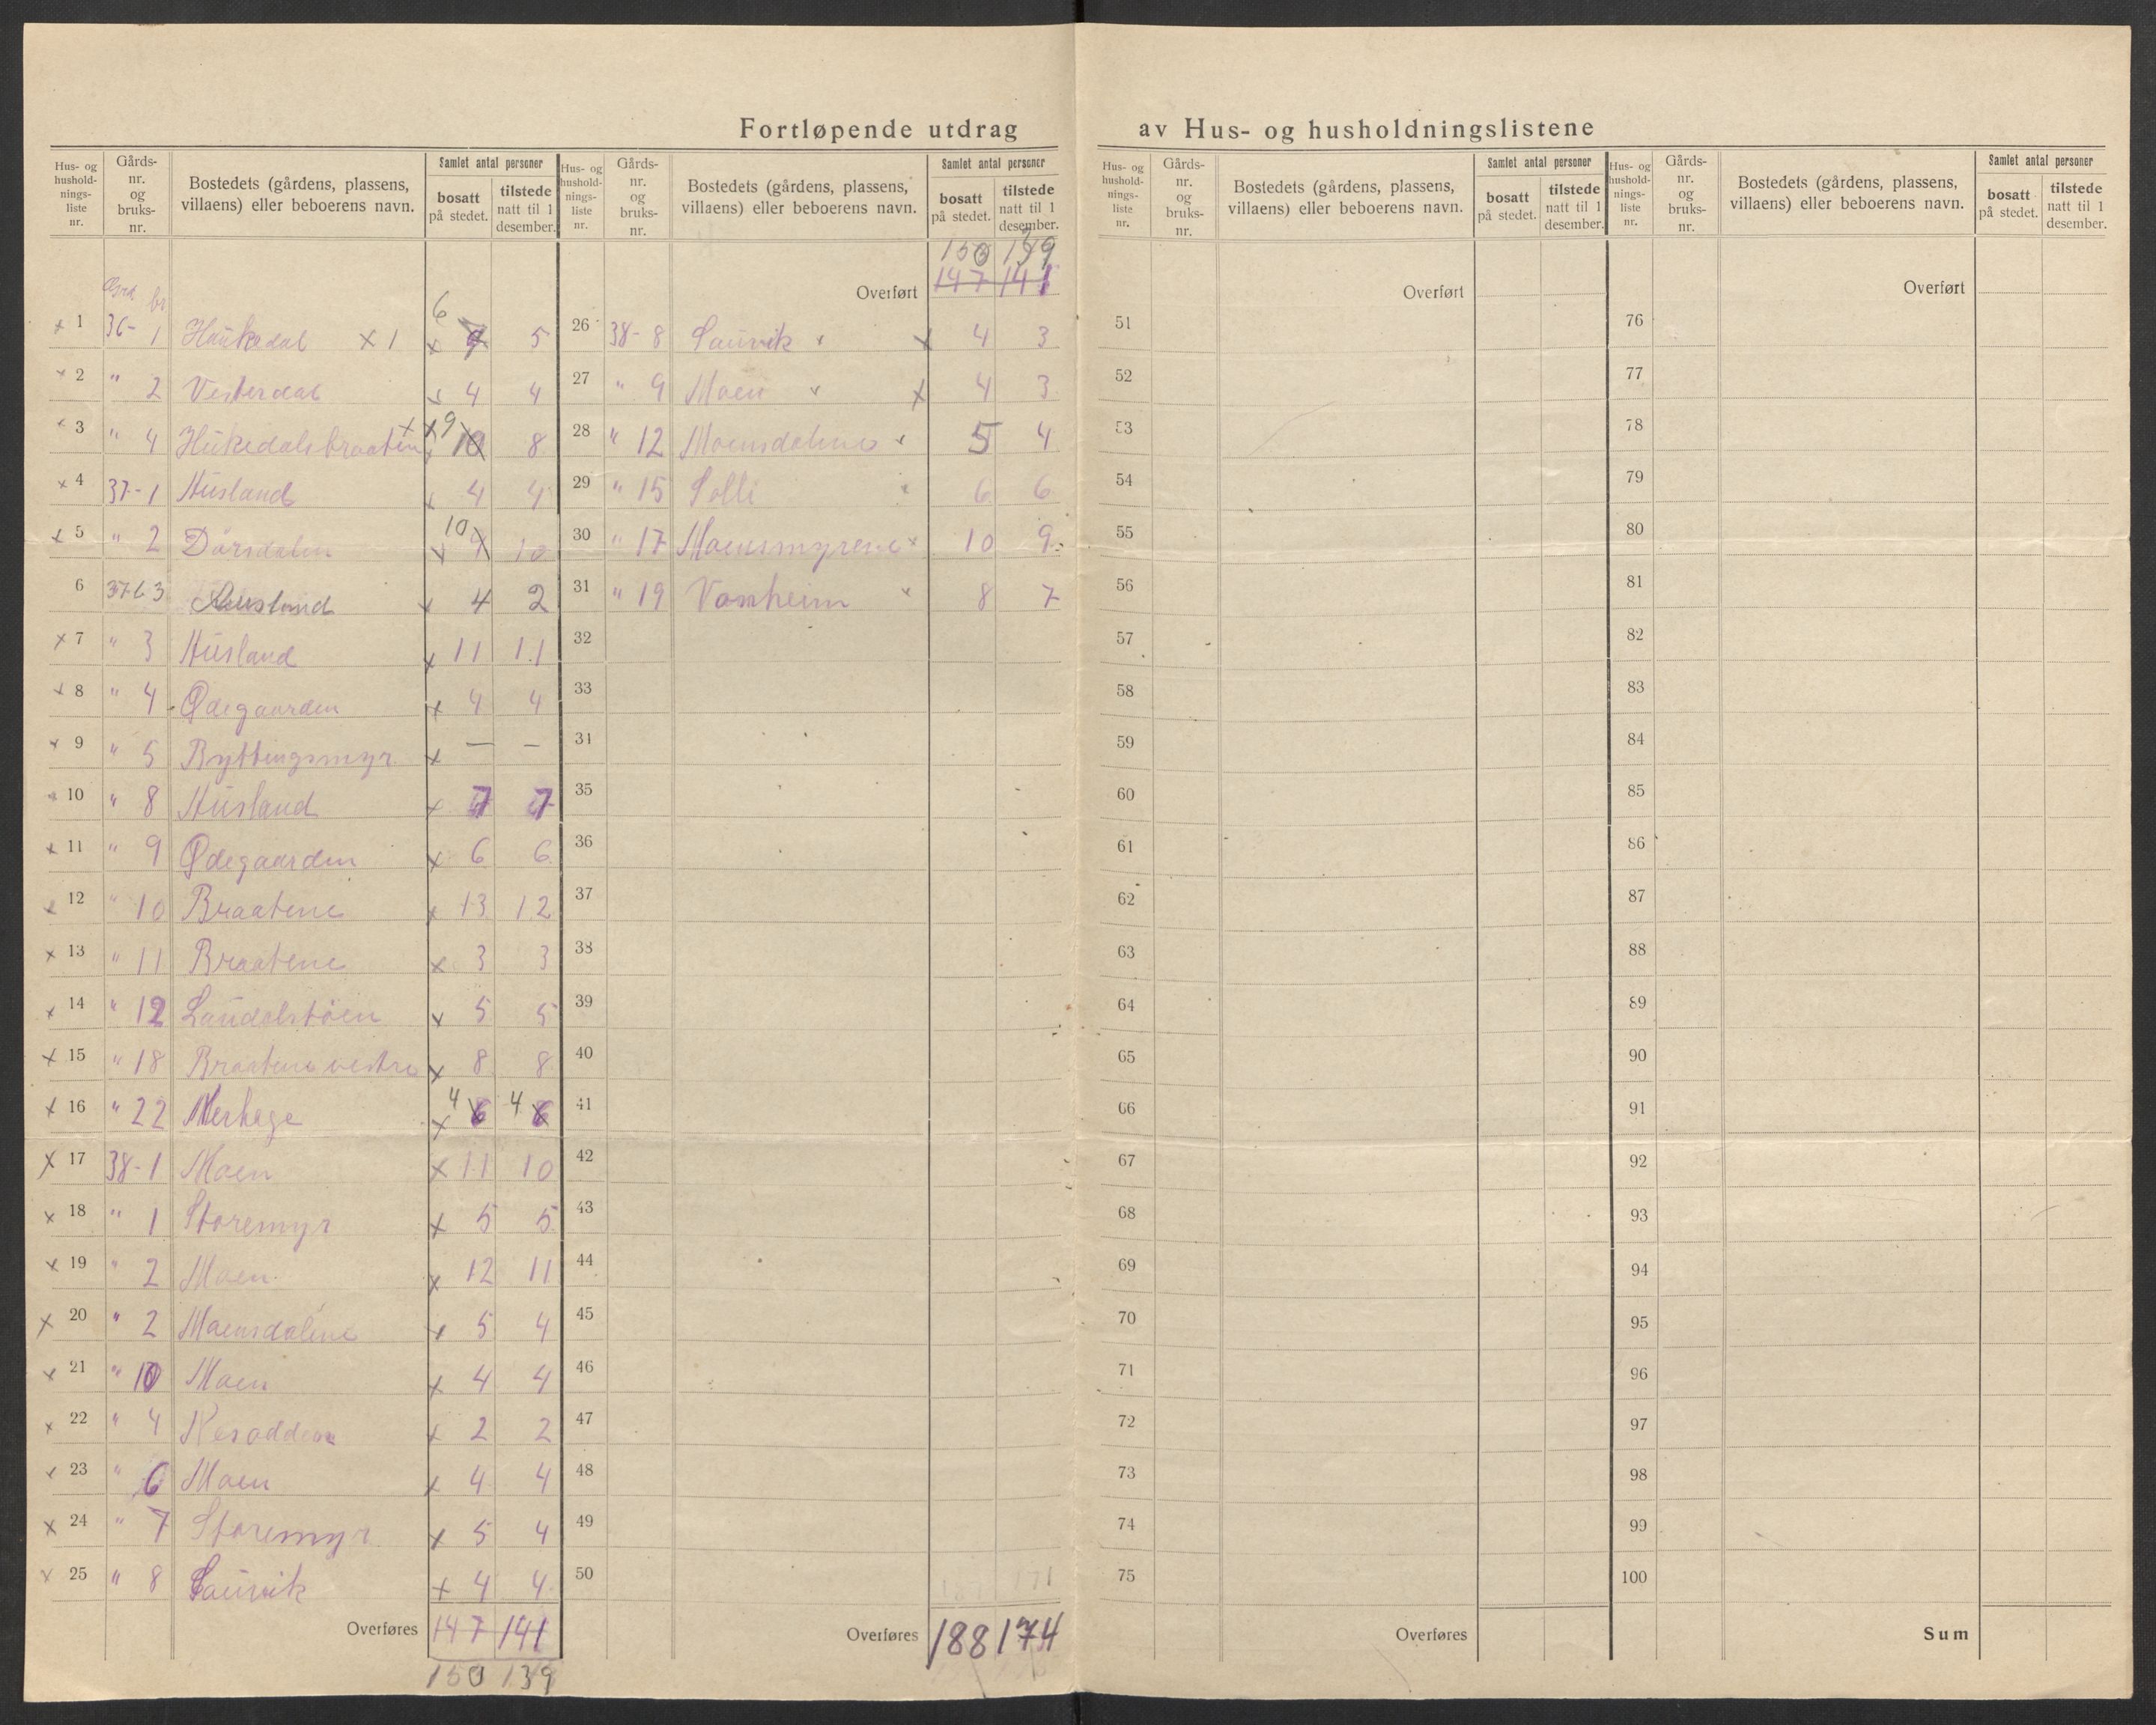 Fortløpende utdrag av Hus- og husholdningslistene
Hus- og hushold-nings-liste nr. Gårds-nr. og bruks-nr. Bostedets (gårdens, plassens, villaens) eller beboerens navn. Samlet antal personer bosatt på stedet. tilstede natt til 1 desember.
Hus- og hushold-nings-liste nr. Gårds-nr. og bruks-nr. Bostedets (gårdens, plassens, villaens) eller beboerens navn. Samlet antal personer bosatt på stedet. tilstede natt til 1 desember.
Hus- og hushold-nings-liste nr. Gårds-nr. og bruks-nr. Bostedets (gårdens, plassens, villaens) eller beboerens navn. Samlet antal personer bosatt på stedet. tilstede natt til 1 desember.
Hus- og hushold-nings-liste nr. Gårds-nr. og bruks-nr. Bostedets (gårdens, plassens, villaens) eller beboerens navn. Samlet antal personer bosatt på stedet. tilstede natt til 1 desember.
x 1 36- 1 Haukedal x 1 x 6 5
x 2 " 2 Vesterdal x 4 4
x 3 " 4 Hukedalsbraaten x 9 10 8
x 4 37-1 Husland x 4 4
x 5 " 2 Dørsdalen x 10 10
6 37-63 Husland x 4 2
x 7 " 3 Husland x 11 11
x 8 " 4 Ødegaarden x 4 4
x 9 " 5 Ryttingsmyr x — —
x 10 " 8 Husland x 7 7
x 11 " 9 Ødegaarden x 6 6
x 12 " 10 Braatene x 13 12
x 13 " 11 Braatene x 3 3
x 14 " 12 Laudalstøen x 5 5
x 15 " 18 Braatene vestre x 8 8
x 16 " 22 Merhege x 4 6 4 6
x 17 38-1 Moen x 11 10
x 18 " 1 Storemyr x 5 5
x 19 " 2 Moen x 12 11
x 20 " 2 Moensdalene x 5 4
x 21 " 10 Moen x 4 4
x 22 " 4 Nesodden x 2 2
x 23 " 6 Moen x 4 4
x 24 " 7 Storemyr x 5 4
x 25 " 8 Saurvik x 4 4
Overføres 147 141
150 139
150 139
Overført 147 141
26 38-8 Saurvik x 4 3
27 " 9 Moen x 4 3
28 " 12 Moensdalene 5 4
29 " 15 Solli 6 6
30 " 17 Moensmyrene 10 9
31 " 19 Vonheim 8 7
32
33
34
35
36
37
38
39
40
41
42
43
44
45
46
47
48
49
50
Overføres 188 174
Overført
51
52
53
54
55
56
57
58
59
60
61
62
63
64
65
66
67
68
69
70
71
72
73
74
75
Overføres
Overført
76
77
78
79
80
81
82
83
84
85
86
87
88
89
90
91
92
93
94
95
96
97
98
99
100
Sum